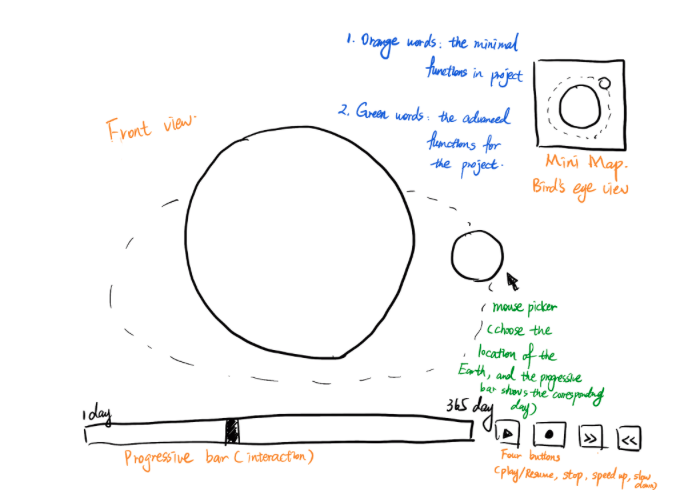 1. Orange words: the minimal
functions in project
2. Green words: the advanced
functions for
the project.
Front view.
Mini Map.
Bird's eye view
mouse picker
(choose the
location of the
Earth, and the progressive
bar shows the corresponding
day)
1 day
365 day
Progressive bar (interaction)
Four buttons
(play/Resume, stop, speed up, slow
down)